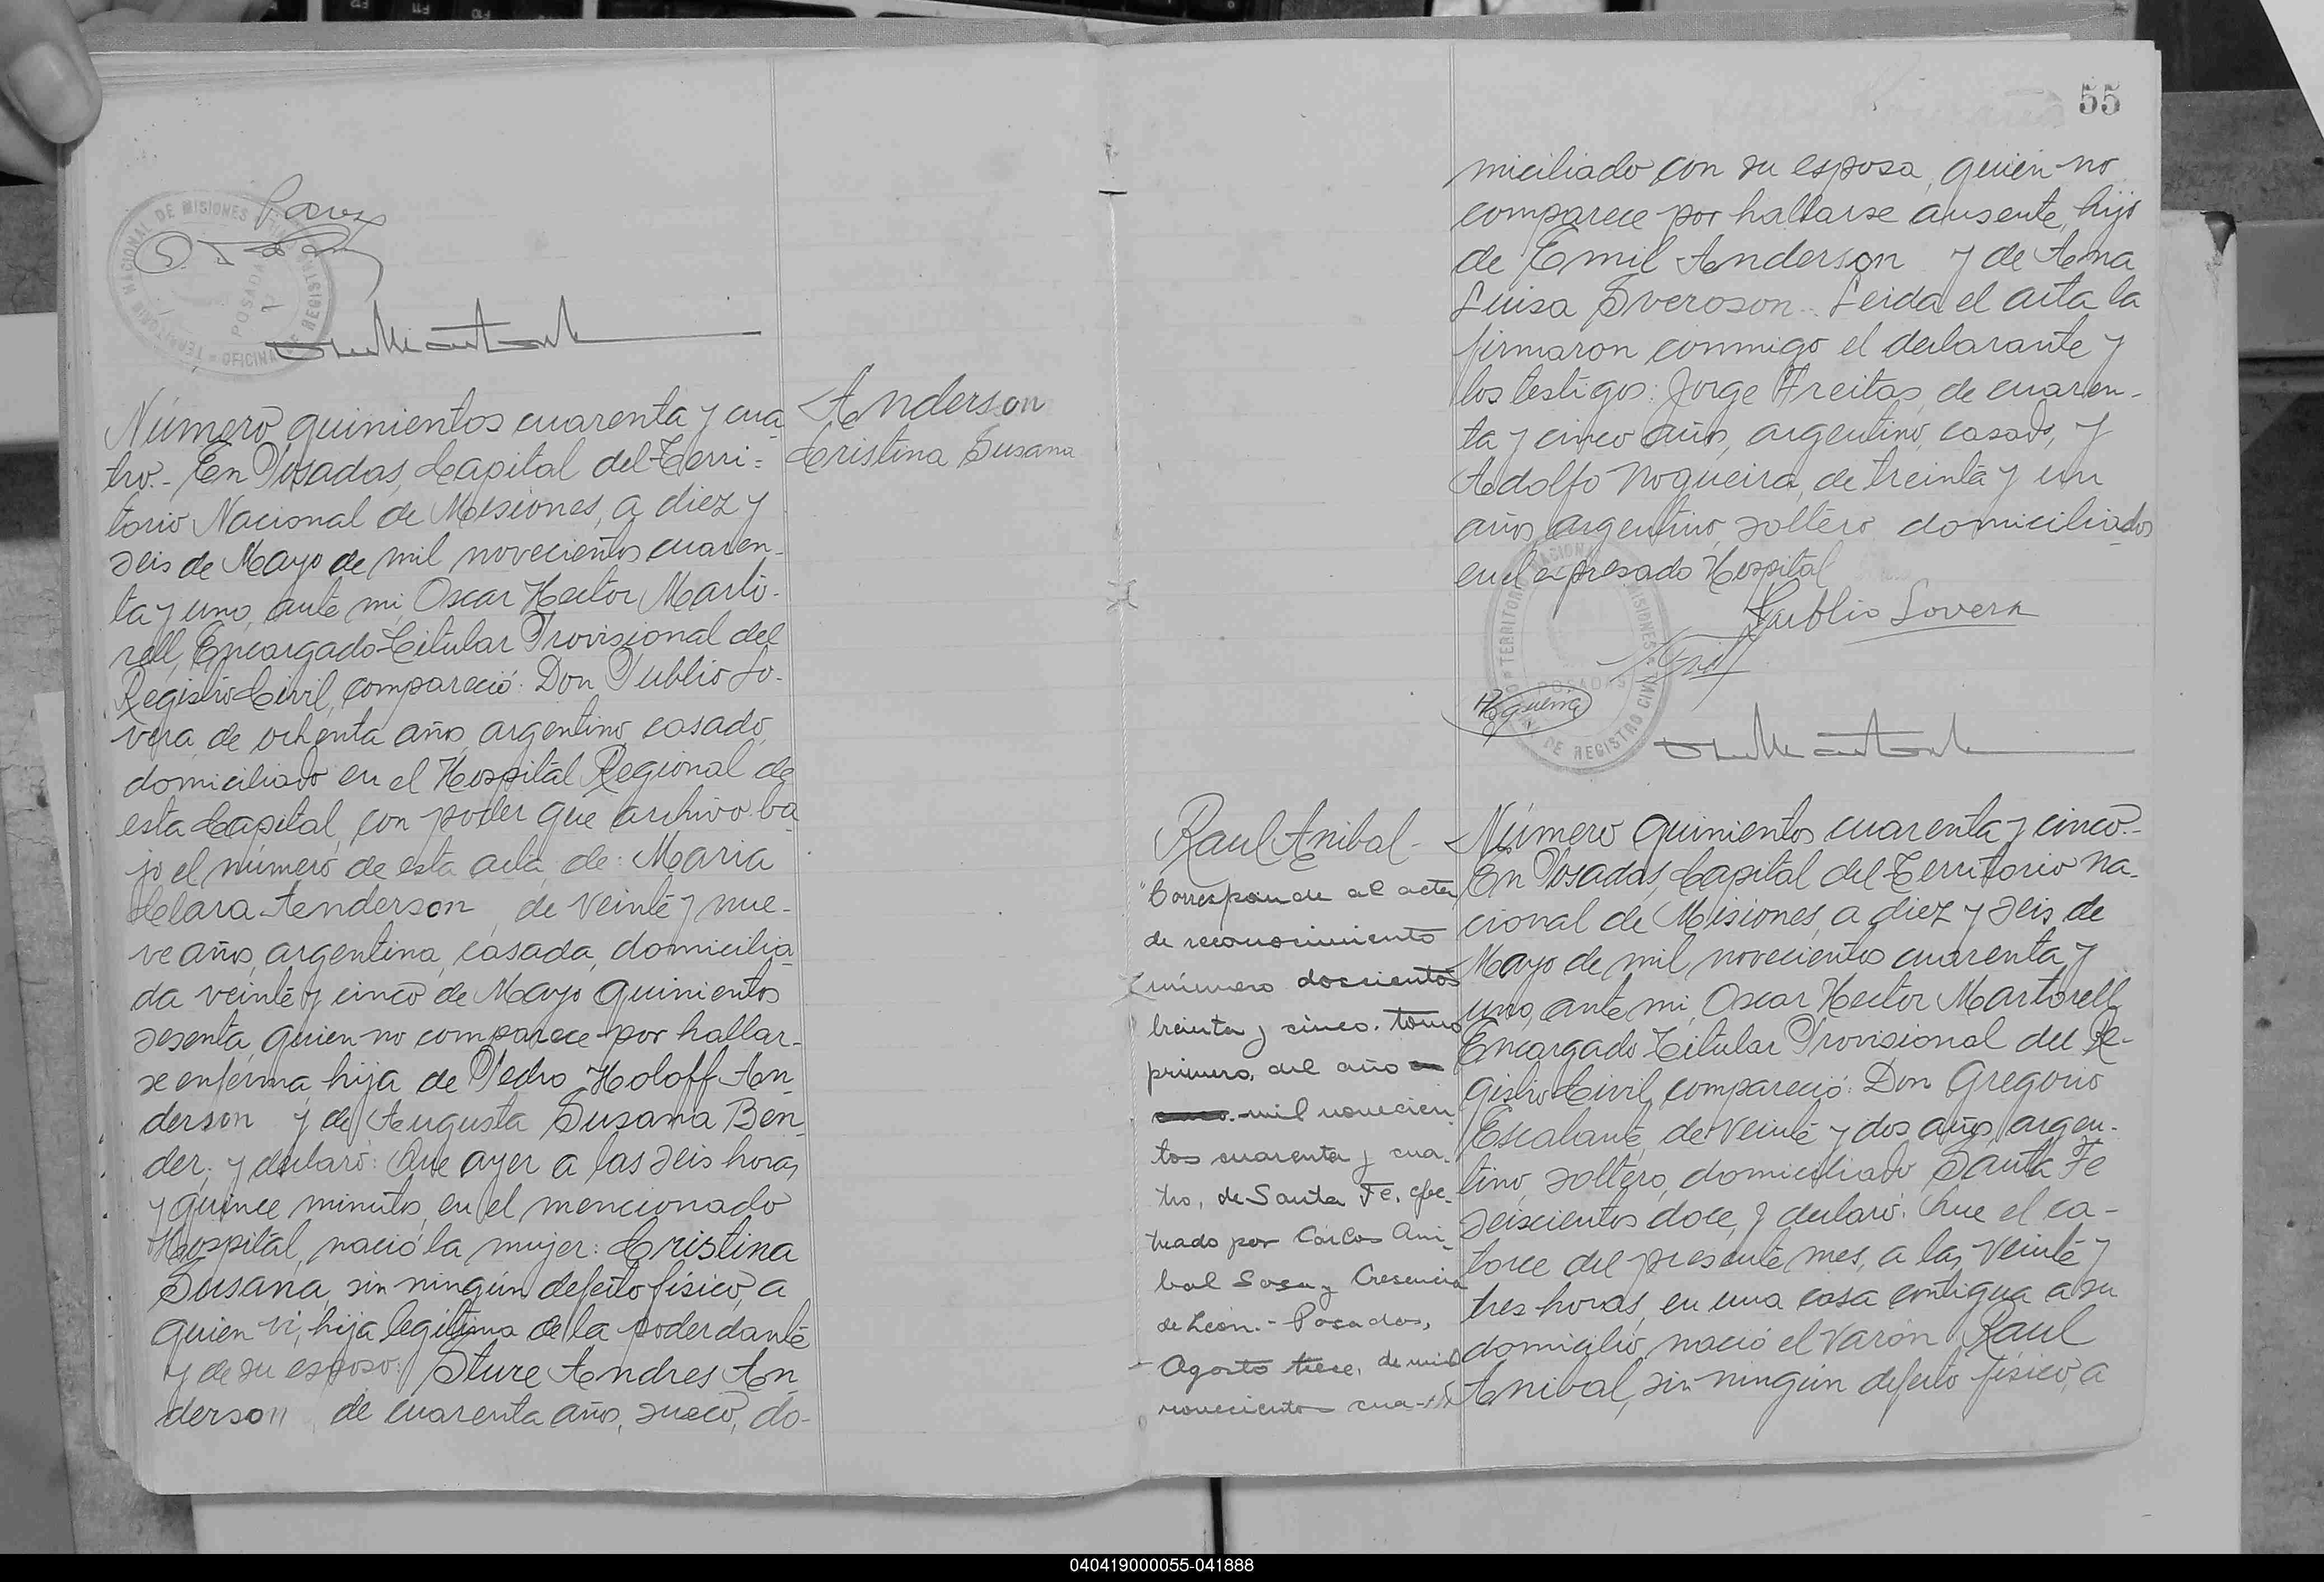 Número quinientos cuarenta y cua
tro.- En Posadas, Capital del Terri=
torio Nacional de Misiones, a diez y
seis de Mayo de mil novecientos cuaren-
ta y uno, ante mi, Oscar Hector Marto-
rell, Encargado Titular Provisional del
Registro Civil, compareció: Don Publio Lo-
vera, de ochenta años, argentino, casado,
domiciliado en el Hospital Regional de
esta Capital, con poder que archivo ba
jo el número de esta acta, de: Maria
Clara Anderson, de veinte y nue-
ve años, argentina, casada, domicilia
da veinte y cinco de Mayo quinientos
sesenta, quien no comparece por hallar-
se enferma, hija de Pedro Holoff An-
derson y de Augusta Susana Ben-
der; y declaró: Que ayer a las seis horas
y quince minutos, en el mencionado
Hospital, nació la mujer: Cristina
Susana, sin ningún defecto físico, a
quien vi, hija legítima de la poderdante
y de su esposo: Sture Andres An
derson, de cuarenta años, sueco, do-
Anderson
Cristina Susana
55
miciliado con su esposa, quien no
comparece por hallarse ausente, hijo
de Emil Anderson y de Ana
Luisa Sveroson.- Leida el acta la
firmaron conmigo el declarante y
los testigos: Jorge Freitas, de cuaren-
ta y cinco años, argentino, casado, y
Adolfo Nogueira, de treinta y un
años, argentino, soltero, domiciliados
en el expresado Hospital
Publio Lovera
Nogueira
Raul Anibal-
"Corresponde al acta
de reconocimiento
número doscientos
treinta y cinco. tomo
primero, del año
mil novecien
tos cuarenta y cua-
tro, de Santa Fe, efec-
tuado por Carlos Ani-
bal Sosa y Cresencia
de León.- Posadas,
Agosto trece, de mil
novecientos cua-
Número quinientos cuarenta y cinco.-
En Posadas, Capital del Territorio Na-
cional de Misiones, a diez y seis de
Mayo de mil novecientos cuarenta y
uno, ante mi, Oscar Hector Martorell,
Encargado Titular Provisional del Re-
gistro Civil, compareció: Don Gregorio
Escalante, de veinte y dos años, argen-
tino, soltero, domiciliado Santa Fe
seiscientos doce, y declaró: Que el ca-
torce del presente mes, a las veinte y
tres horas, en una casa contigua a su
domicilio, nació el varón Raul
Anibal, sin ningún defecto físico, a
040419000055-041888